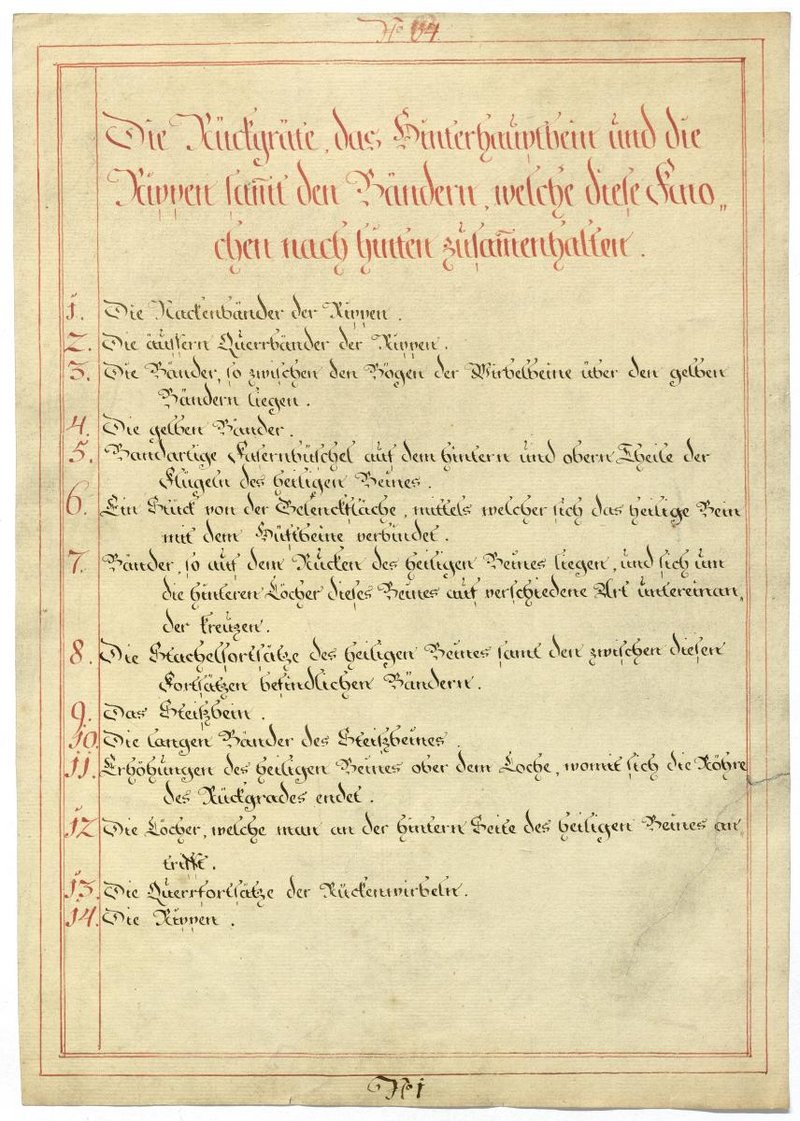 No 64
Die Rückgräte, das Hinterhauptbein und die
Rippen sam̅t den Bändern, welche diese Kno„
chen nach hinten zusam̅enhalten.
1. Die Nackenbänder der Rippen.
2. Die äussern Querrbänder der Rippen.
3. Die Bänder, so zwischen den Bögen der Wirbelbeine über den gelben
Bändern liegen.
4. Die gelben Bänder.
5. Bandartige Fasernbüschel auf dem hintern und obern Theile der
Flügeln des heiligen Beines.
6. Ein Stück von der Gelenckfläche, mittels welcher sich das heilige Bein
mit dem Hüftbeine verbindet.
7. Bänder, so auf dem Rücken des heiligen Beines liegen, und sich um
die hinteren Löcher dieses Beines auf verschiedene Art untereinan„
der kreuzen.
8. Die Stachelfortsätze des heiligen Beines samt den zwischen diesen
Fortsätzen befindlichen Bändern.
9. Das Steißbein.
10. Die langen Bänder des Steißbeines.
11. Erhöhungen des heiligen Beines ober dem Loche, womit sich die Röhre
des Rückgrades endet.
12 Die Löcher, welche man an der hintern Seite des heiligen Beines an„
trifft.
13. Die Querrfortsätze der Rückenwirbeln.
14. Die Rippen.
No 1